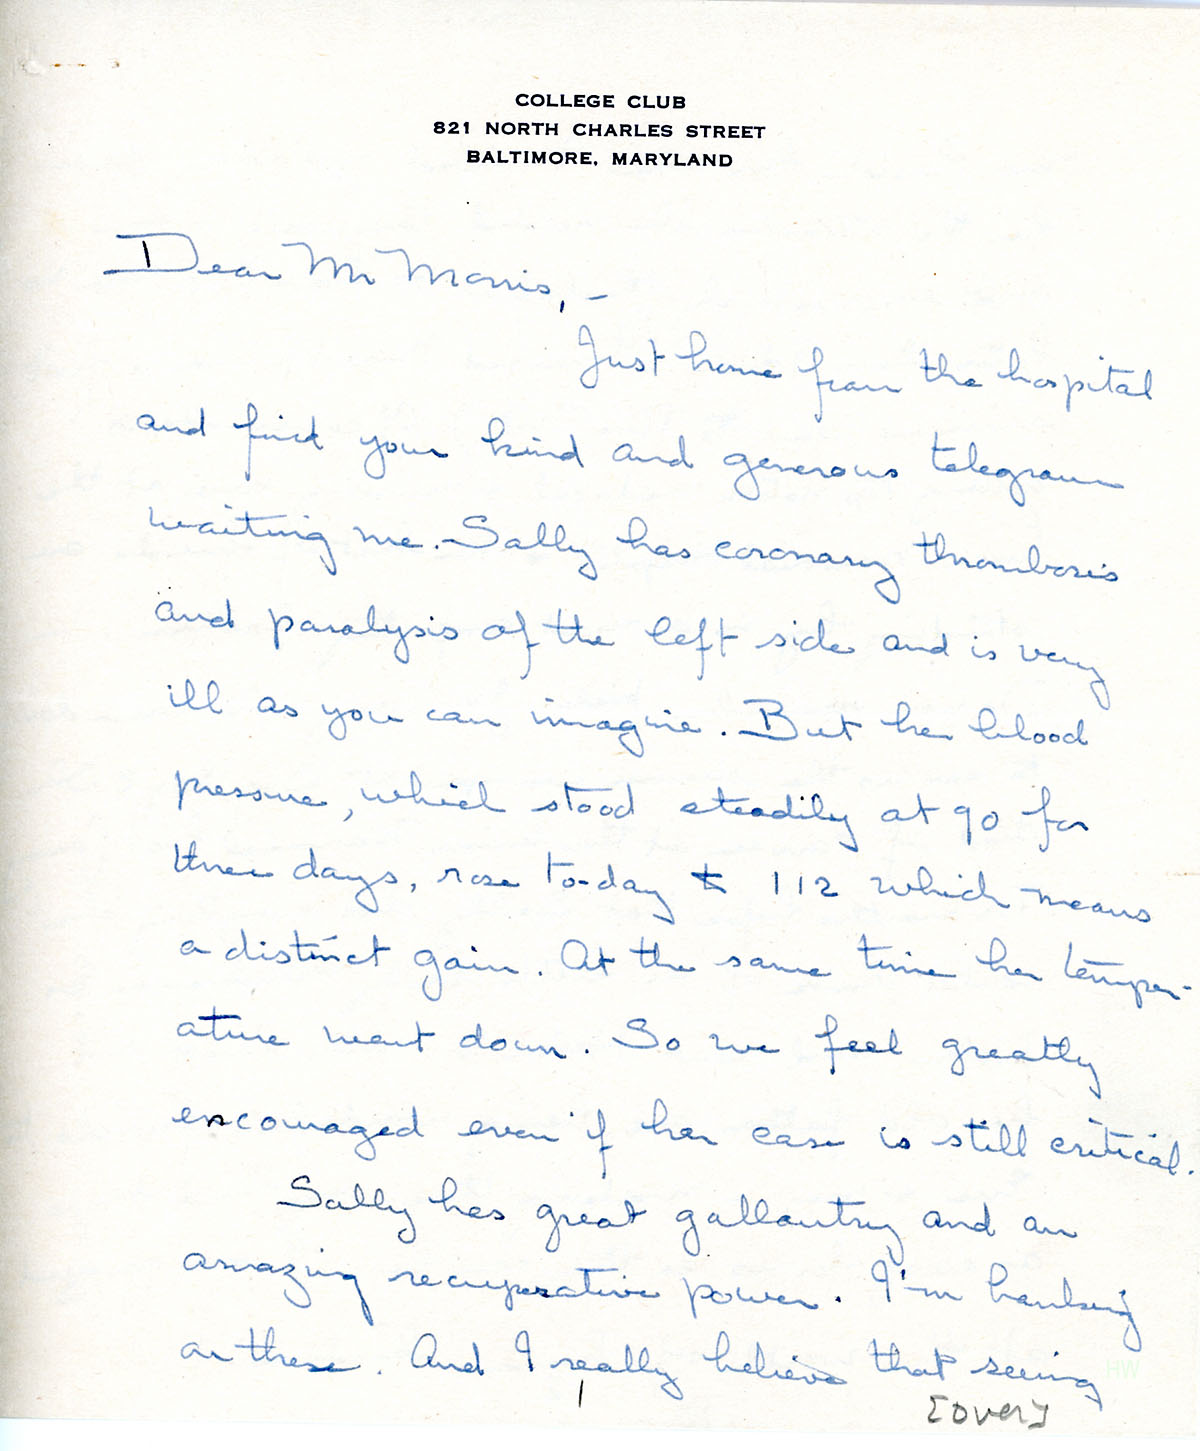 COLLEGE CLUB
821 NORTH CHARLES STREET
BALTIMORE, MARYLAND
Dear Mr Morris, –
Just home from the hospital
and find your kind and generous telegram
waiting me. Sally has coronary thrombosis
and paralysis of the left side and is very
ill as you can imagine. But her blood
pressure, which stood steadily at 90 for
three days, rose to-day to 112 which means
a distinct gain. At the same time her temper-
ature went down. So we feel greatly
encouraged even if her case is still critical.
Sally has great gallantry and an
amazing recuperative power. I'm banking
on these. And I really believe that seeing
[over]
HW